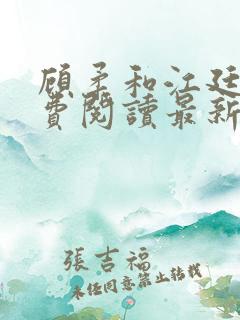 顾柔和江廷
费閱讀最新
張吉福
未经同意禁止转载